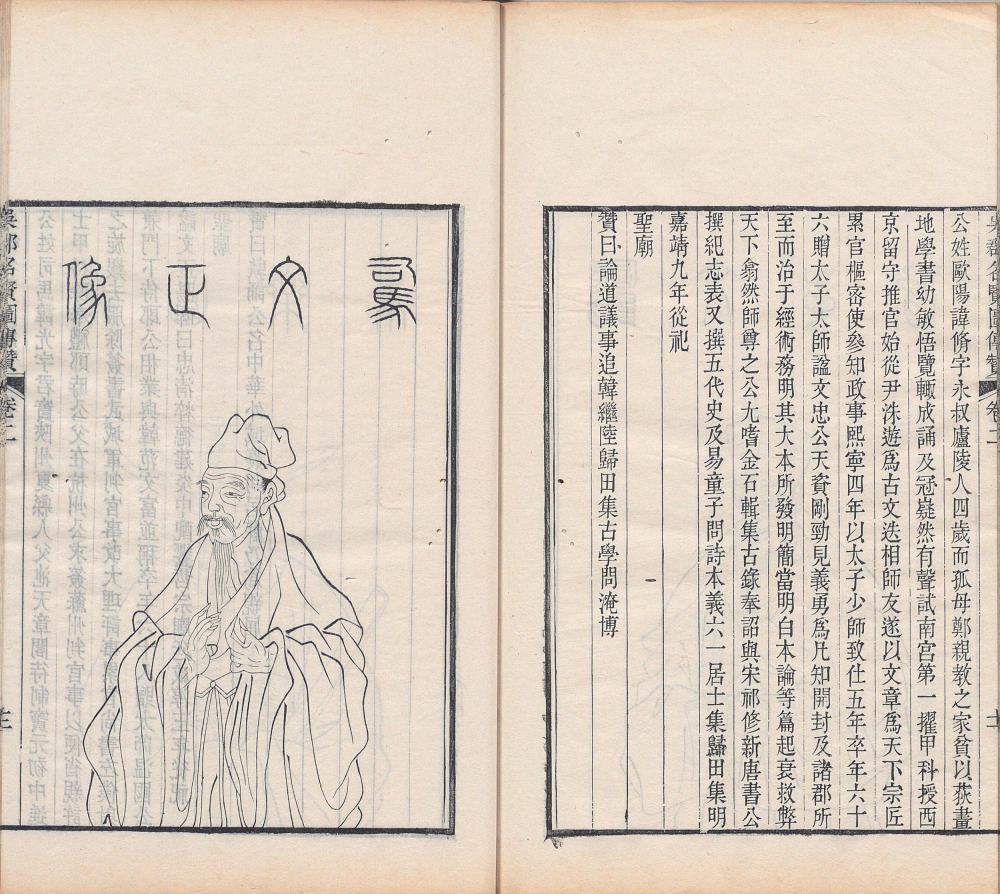 吳郡名賢圖傳贊 卷二
公姓歐陽諱脩字永叔廬陵人四歲而孤母鄭親教之家貧以荻畫
地學書幼敏悟覽輒成誦及冠嶷然有聲試南宮第一擢甲科授西
京留守推官始從尹洙遊爲古文迭相師友遂以文章爲天下宗匠
累官樞密使參知政事熙寧四年以太子少師致仕五年卒年六十
六贈太子太師諡文忠公天資剛勁見義勇爲凡知開封及諸郡所
至而治于經術務明其大本所發明簡當明白本論等篇起衰救弊
天下翕然師尊之公尤嗜金石輯集古錄奉詔與宋祁修新唐書公
撰紀志表又撰五代史及易童子問詩本義六一居士集歸田集明
嘉靖九年從祀
聖廟
贊曰論道議事追韓繼陸歸田集古學問淹博
司馬文正像
吳郡名賢圖傳贊 卷二